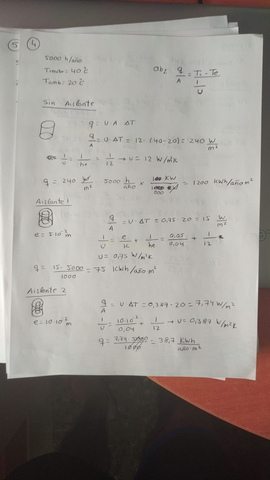 4
5000 h/año
Tindu = 40 ºC
Tamb = 20ºC
obs q/A = Ti - Te / 1/U
Sin Aislante
q = U · A · ΔT
q/A = U · ΔT = 12 · (40-20) = 240 W/m²
1/U = 1/ho = 1/12 → U = 12 W/m²K
q = 240 W/m² 5000 h/año × = 1200 KWh/año m²
Aislante 1
q/A = U · ΔT = 0,75 · 20 = 15 W/m²
e = 5·10⁻²m
1/U = e/K + 1/he = 0,05/0,04 + 1/12
U = 0,75 W/m²K
q = 15 · 5000/1000 = 75 KWh/año m²
Aislante 2
q/A = U ΔT = 0,387 · 20 = 7,74 W/m²
e = 10·10⁻²m
1/U = 10·10⁻²/0,04 + 1/12 → U = 0,387 W/m²K
q = 7,74 · 5000/1000 = 38,7 KWh/año m²